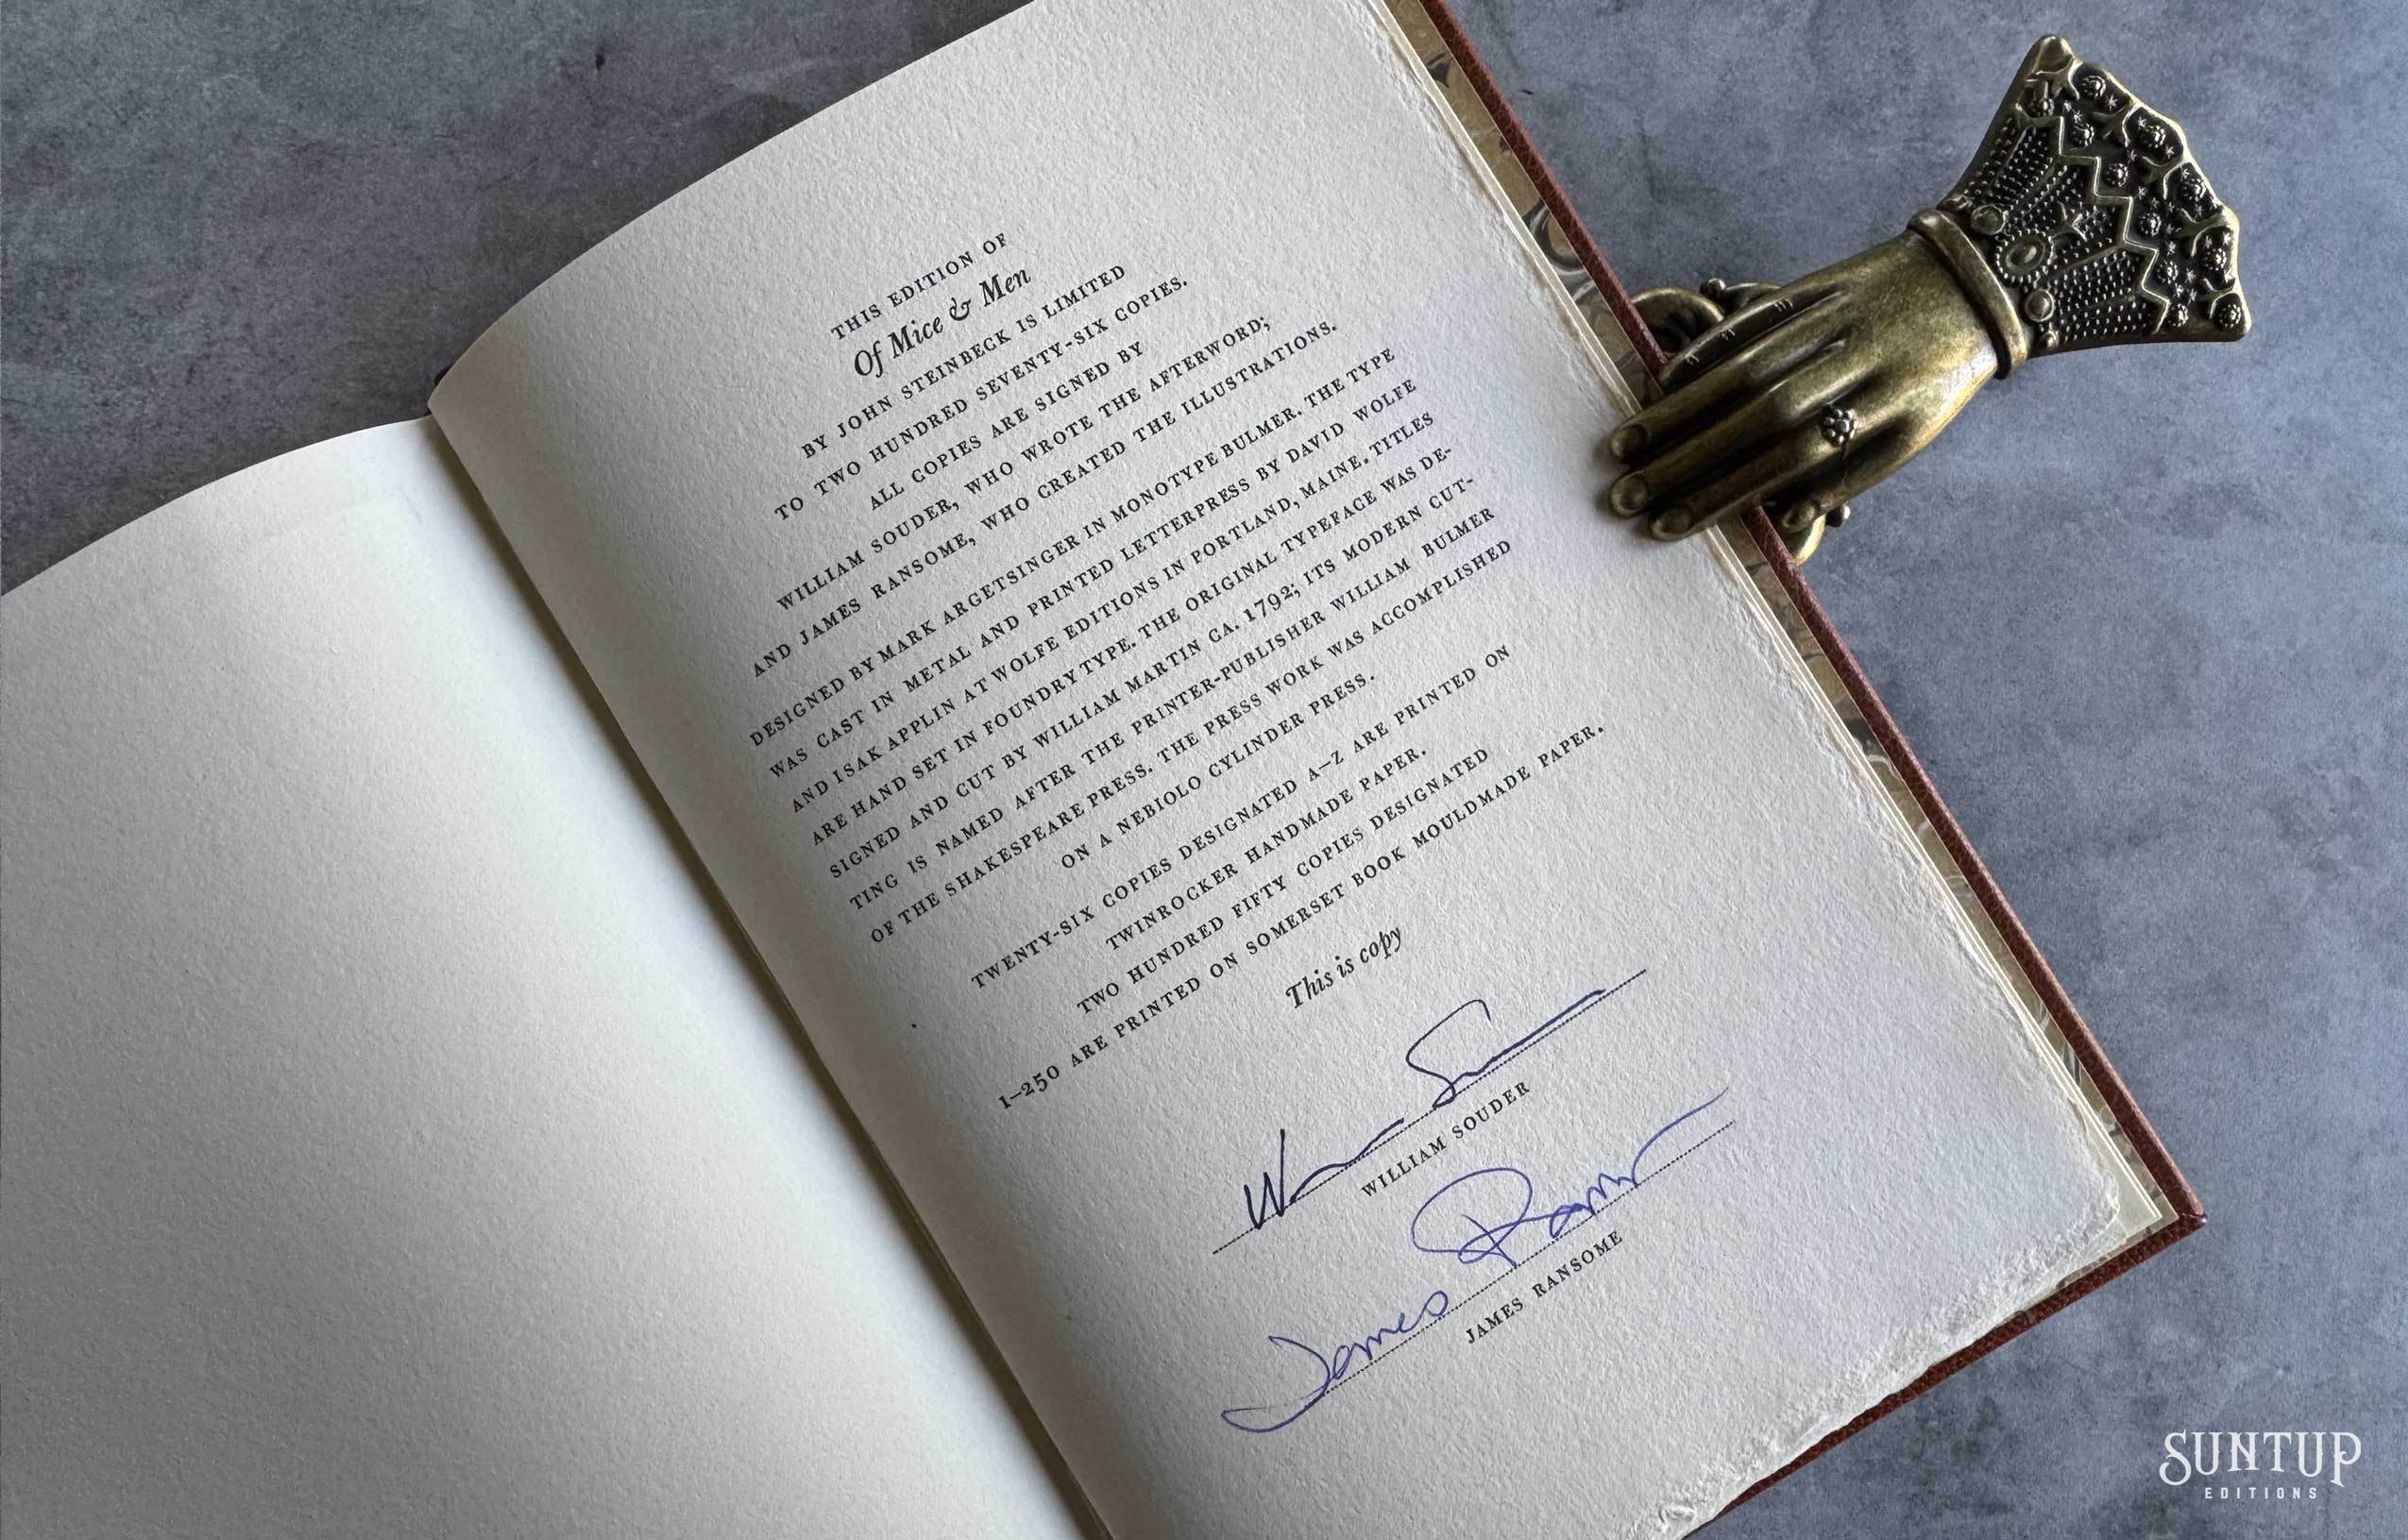 THIS EDITION OF
Of Mice & Men
BY JOHN STEINBECK IS LIMITED
TO TWO HUNDRED SEVENTY-SIX COPIES.
ALL COPIES ARE SIGNED BY
WILLIAM SOUDER, WHO WROTE THE AFTERWORD;
AND JAMES RANSOME, WHO CREATED THE ILLUSTRATIONS.
DESIGNED BY MARK ARGETSINGER IN MONOTYPE BULMER. THE TYPE
WAS CAST IN METAL AND PRINTED LETTERPRESS BY DAVID WOLFE
AND ISAK APPLIN AT WOLFE EDITIONS IN PORTLAND, MAINE. TITLES
ARE HAND SET IN FOUNDRY TYPE. THE ORIGINAL TYPEFACE WAS DE-
SIGNED AND CUT BY WILLIAM MARTIN CA. 1792; ITS MODERN CUT-
TING IS NAMED AFTER THE PRINTER-PUBLISHER WILLIAM BULMER
OF THE SHAKESPEARE PRESS. THE PRESS WORK WAS ACCOMPLISHED
ON A NEBIOLO CYLINDER PRESS.
TWENTY-SIX COPIES DESIGNATED A–Z ARE PRINTED ON
TWINROCKER HANDMADE PAPER.
TWO HUNDRED FIFTY COPIES DESIGNATED
1–250 ARE PRINTED ON SOMERSET BOOK MOULDMADE PAPER.
This is copy
WILLIAM SOUDER
James
JAMES RANSOME
SUNTUP
EDITIONS